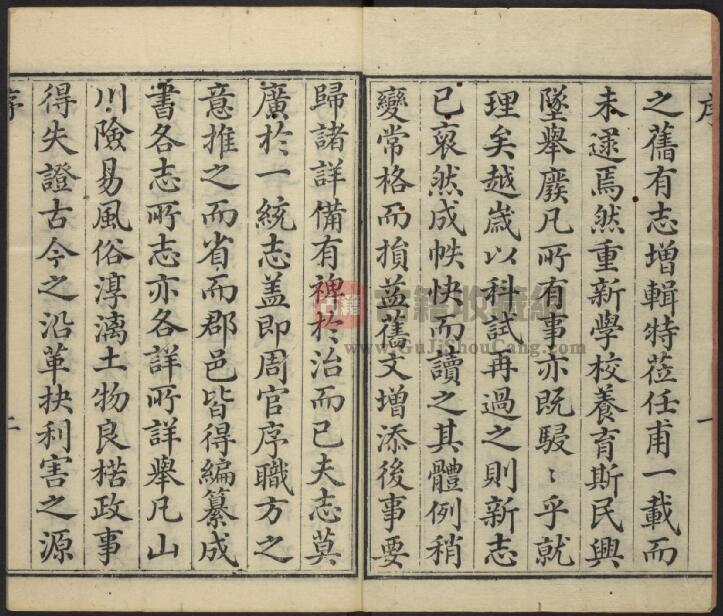 序
一
之舊有志增輯特莅任甫一載而
未遂焉然重新學校養育斯民興
墜舉廢凡所有事亦既駸〻乎就
理矣越歲以科試再過之則新志
已裒然成帙快而讀之其體例稍
變常格而損益舊文增添後事要
歸諸詳備有裨於治而已夫志莫
廣於一統志盖即周官序職方之
意推之而省而郡邑皆得編纂成
書各志所志亦各詳所詳舉凡山
川險易風俗淳漓土物良楛政事
得失證古今之沿革抉利害之源
序
二
古籍
古籍收藏網
www.GuJiShouCang.com